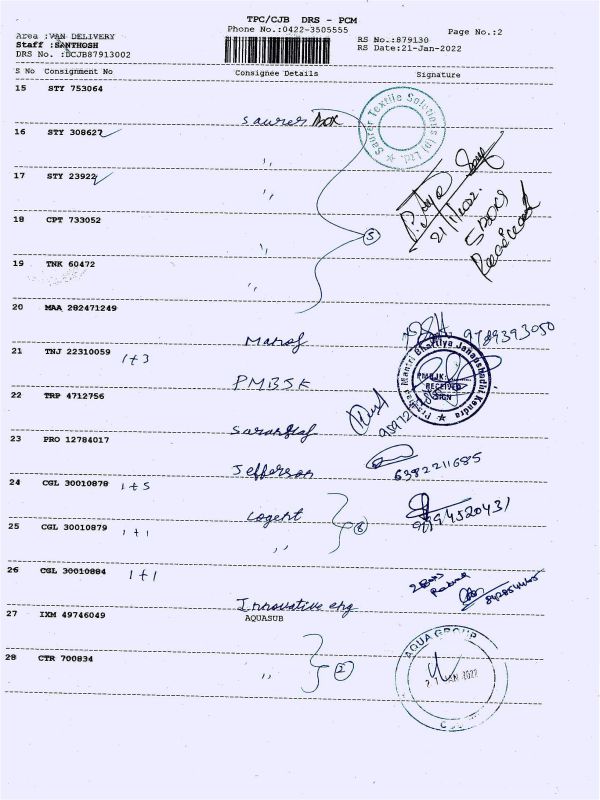 TPC/CJB DRS - PCM
Phone No.:0422-3505555
Page No.:2
Area :VAN DELIVERY
Staff :SANTHOSH
DRS No. :DCJB87913002
RS No.:879130
RS Date:21-Jan-2022
S No Consignment No Consignee Details Signature
15 STY 753064
Saurer Box
Saurer Textile Solutions (p) Ltd.
16 STY 308627
,,
17 STY 23922
,,
21/1/2022.
5 Box
Received
18 CPT 733052
,,
5
19 TNK 60472
,,
20 MAA 282471249
9789393050
21 TNJ 22310059 1+3
PMBJK
Pradhan Mantri Bhartiya Janaushadhi Kendra
PMBJK:
RECEIVED
SIGN
22 TRP 4712756
23 PRO 12784017
Jefferson
6382211685
24 CGL 30010878 1+5
Logent
6
25 CGL 30010879 1+1
,,
26 CGL 30010884 1+1
Innovative eng
27 IXM 49746049
AQUASUB
AQUA GROUP
21 JAN 2022
28 CTR 700834
,,
2